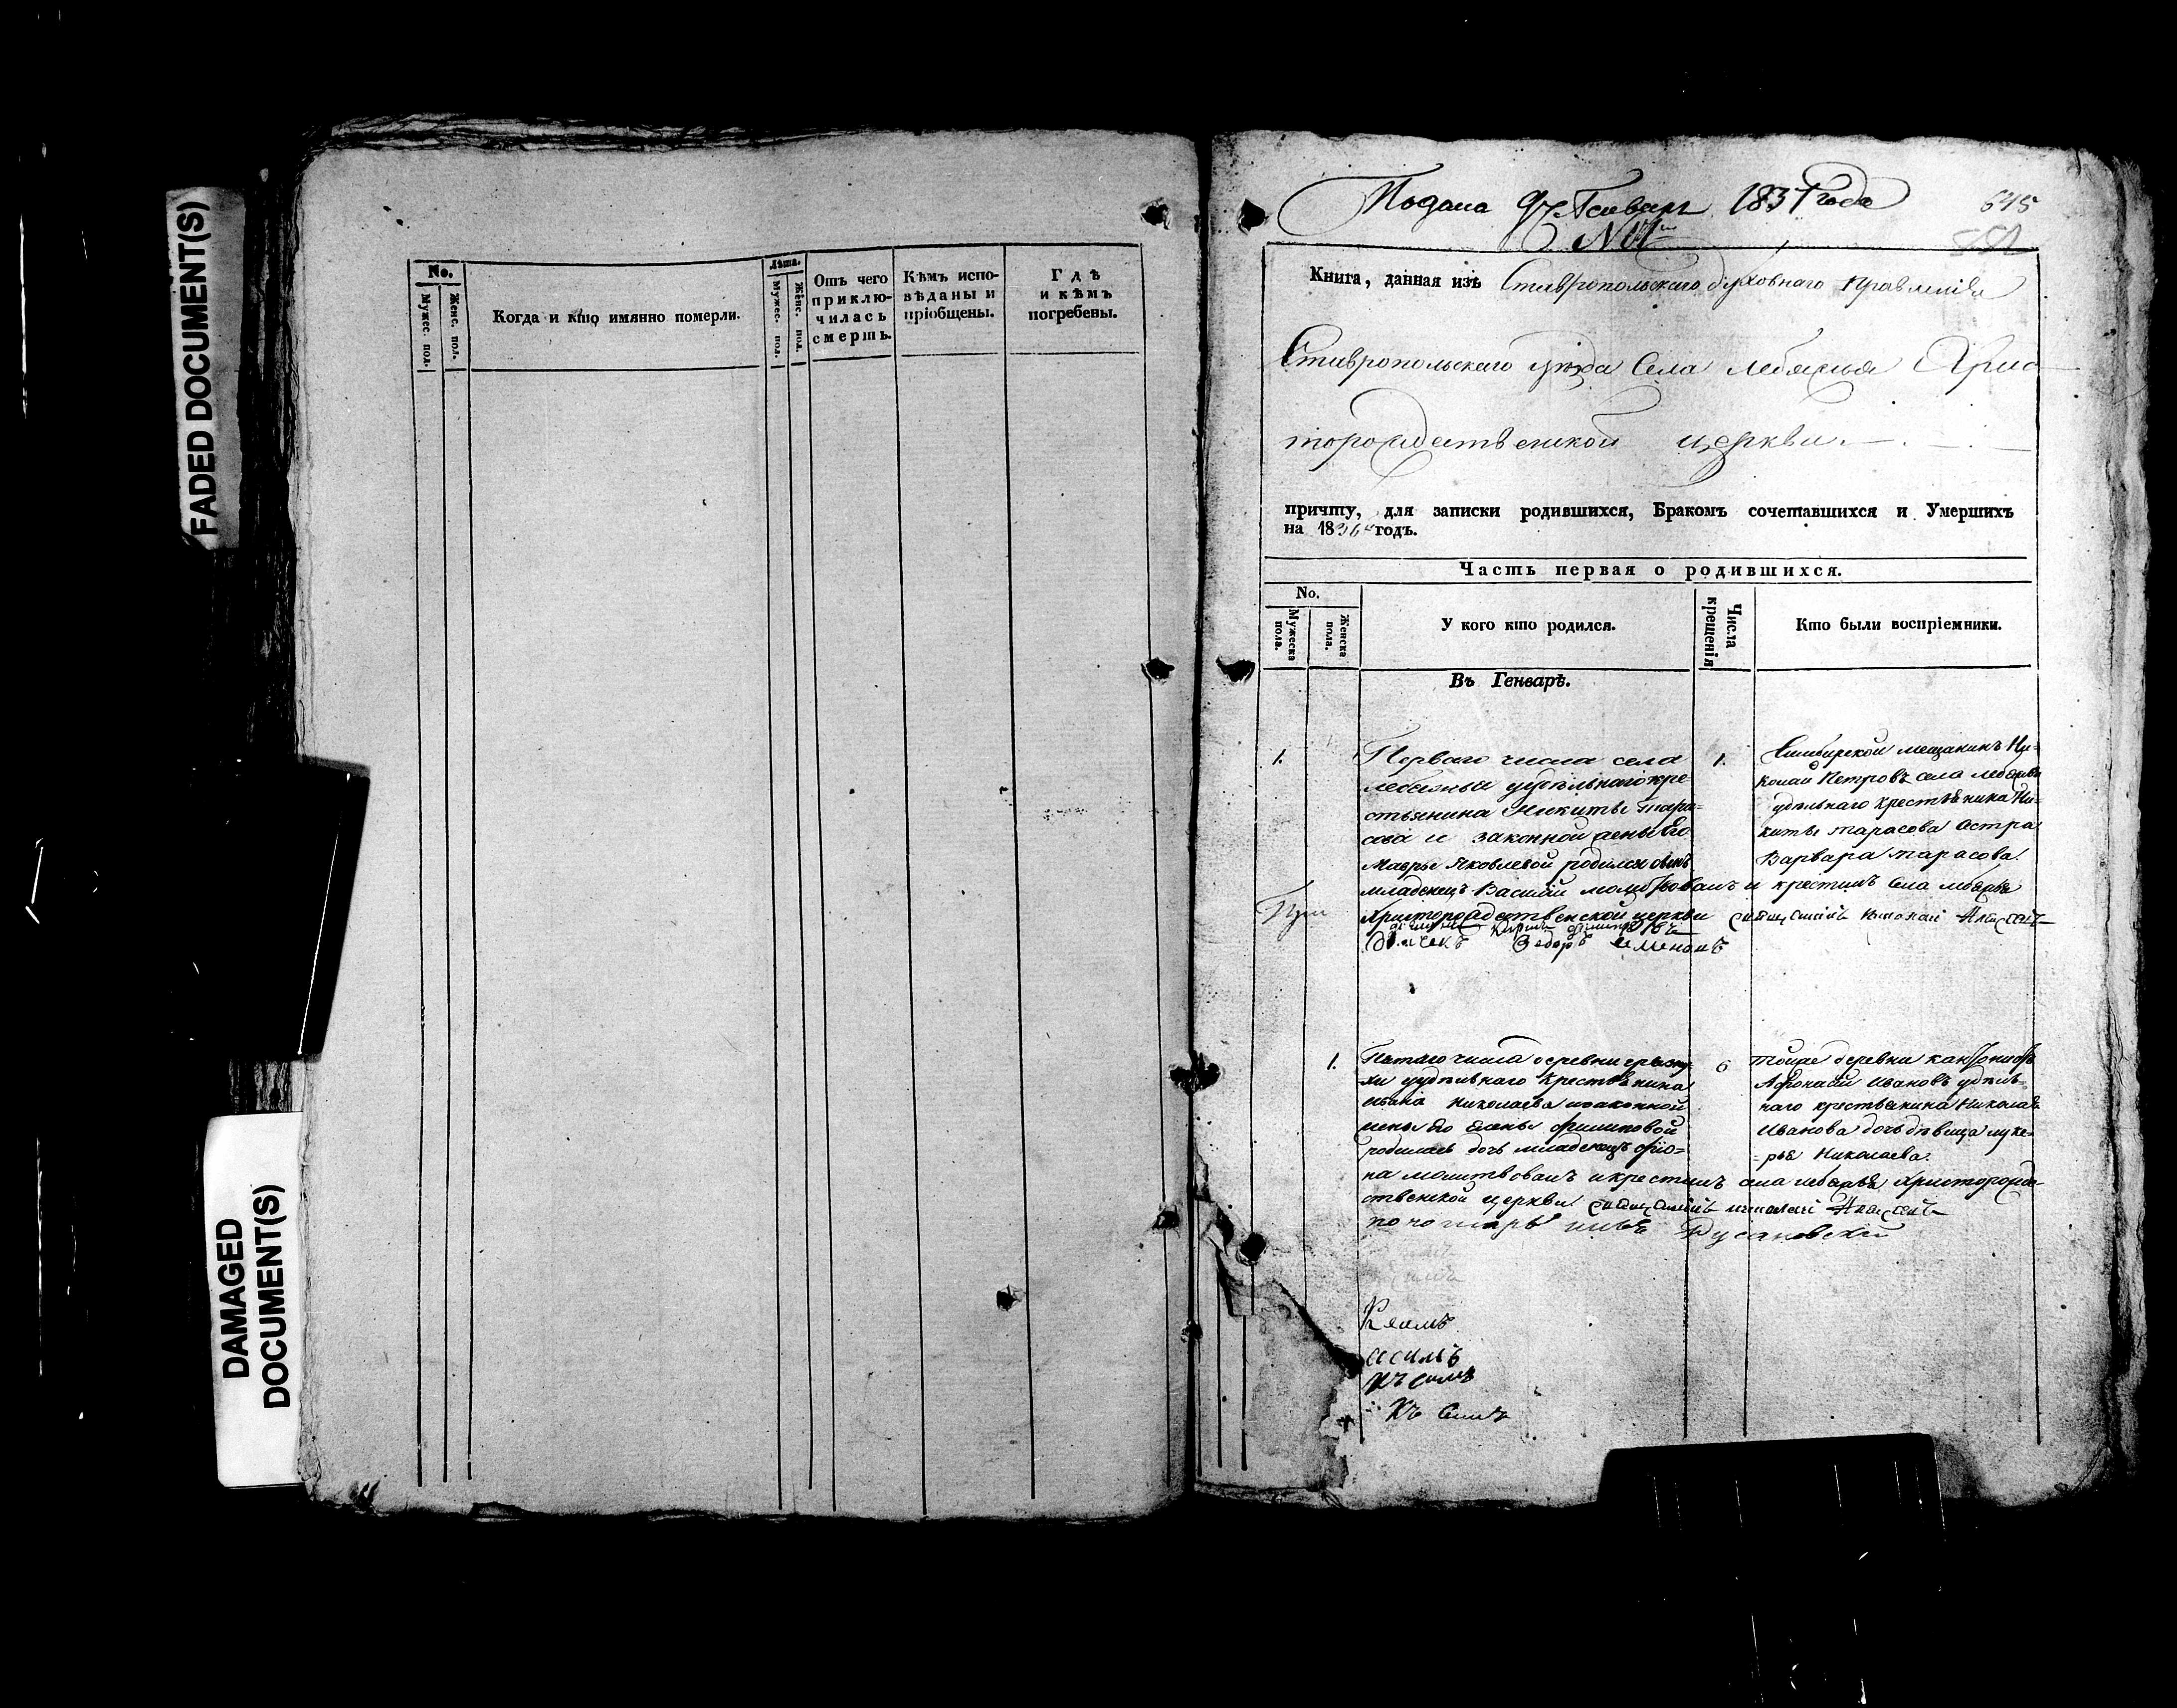 FADED DOCUMENT(S)
DAMAGED
DOCUMENT(S)
No.
Мужес. пол.
Женс. пол.
Когда и кто имянно померли.
Лѣта.
Мужес. пол.
Женс. пол.
Отъ чего
приклю-
чилась
смерть.
Кѣмъ испо-
вѣданы и
пріобщены.
Гдѣ
и кѣмъ
погребены.
Подана 1837 года
645
Книга, данная изъ Ставропольскаго духовнаго Правленія
Ставропольскаго уѣзда Села Лебяжья Хрис
торождественской церкви.
причту, для записки родившихся, Бракомъ сочетавшихся и Умершихъ
на 1836 годъ.
Часть первая о родившихся.
No.
Мужеска
пола.
Женска
пола.
У кого кто родился.
Числа
крещенія
Кто были воспріемники.
Въ Генварѣ.
1.
Перваго числа села
Лебяжья удѣльнаго кре
стьянина Никиты Тара-
сова и законной жены Его
Мавры Яковлевой родился сынъ
младенецъ Василій молитвовалъ и крестилъ Села Лебяжья
Христорождественской церкви священникъ Николай
Дьячекъ Федоръ Семеновъ
1.
Симбирской мещанинъ Ни-
колай Петровъ села Лебяжья
удѣльнаго крестьянина Ни-
киты Тарасова сестра
Варвара Тарасова.
1.
Пятаго числа деревни
удѣльнаго крестьянина
Ивана Николаева и законной
жены Его Елены Филиповой
родилась дочь младенецъ
на молитвовалъ и крестилъ села Лебяжья Христорожде-
ственской церкви священникъ Николай
пономарь Русановскій
6
тойже деревни кантонистъ
Афонасій Ивановъ удѣль-
наго крестьянина Николая
Иванова дочь дѣвица Луке-
-рья Николаева.
Къ симъ